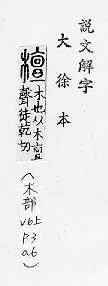 說文解字
大徐本
檀
木也从木亶
聲徒乾切
(木部
v6上
p3
a6)